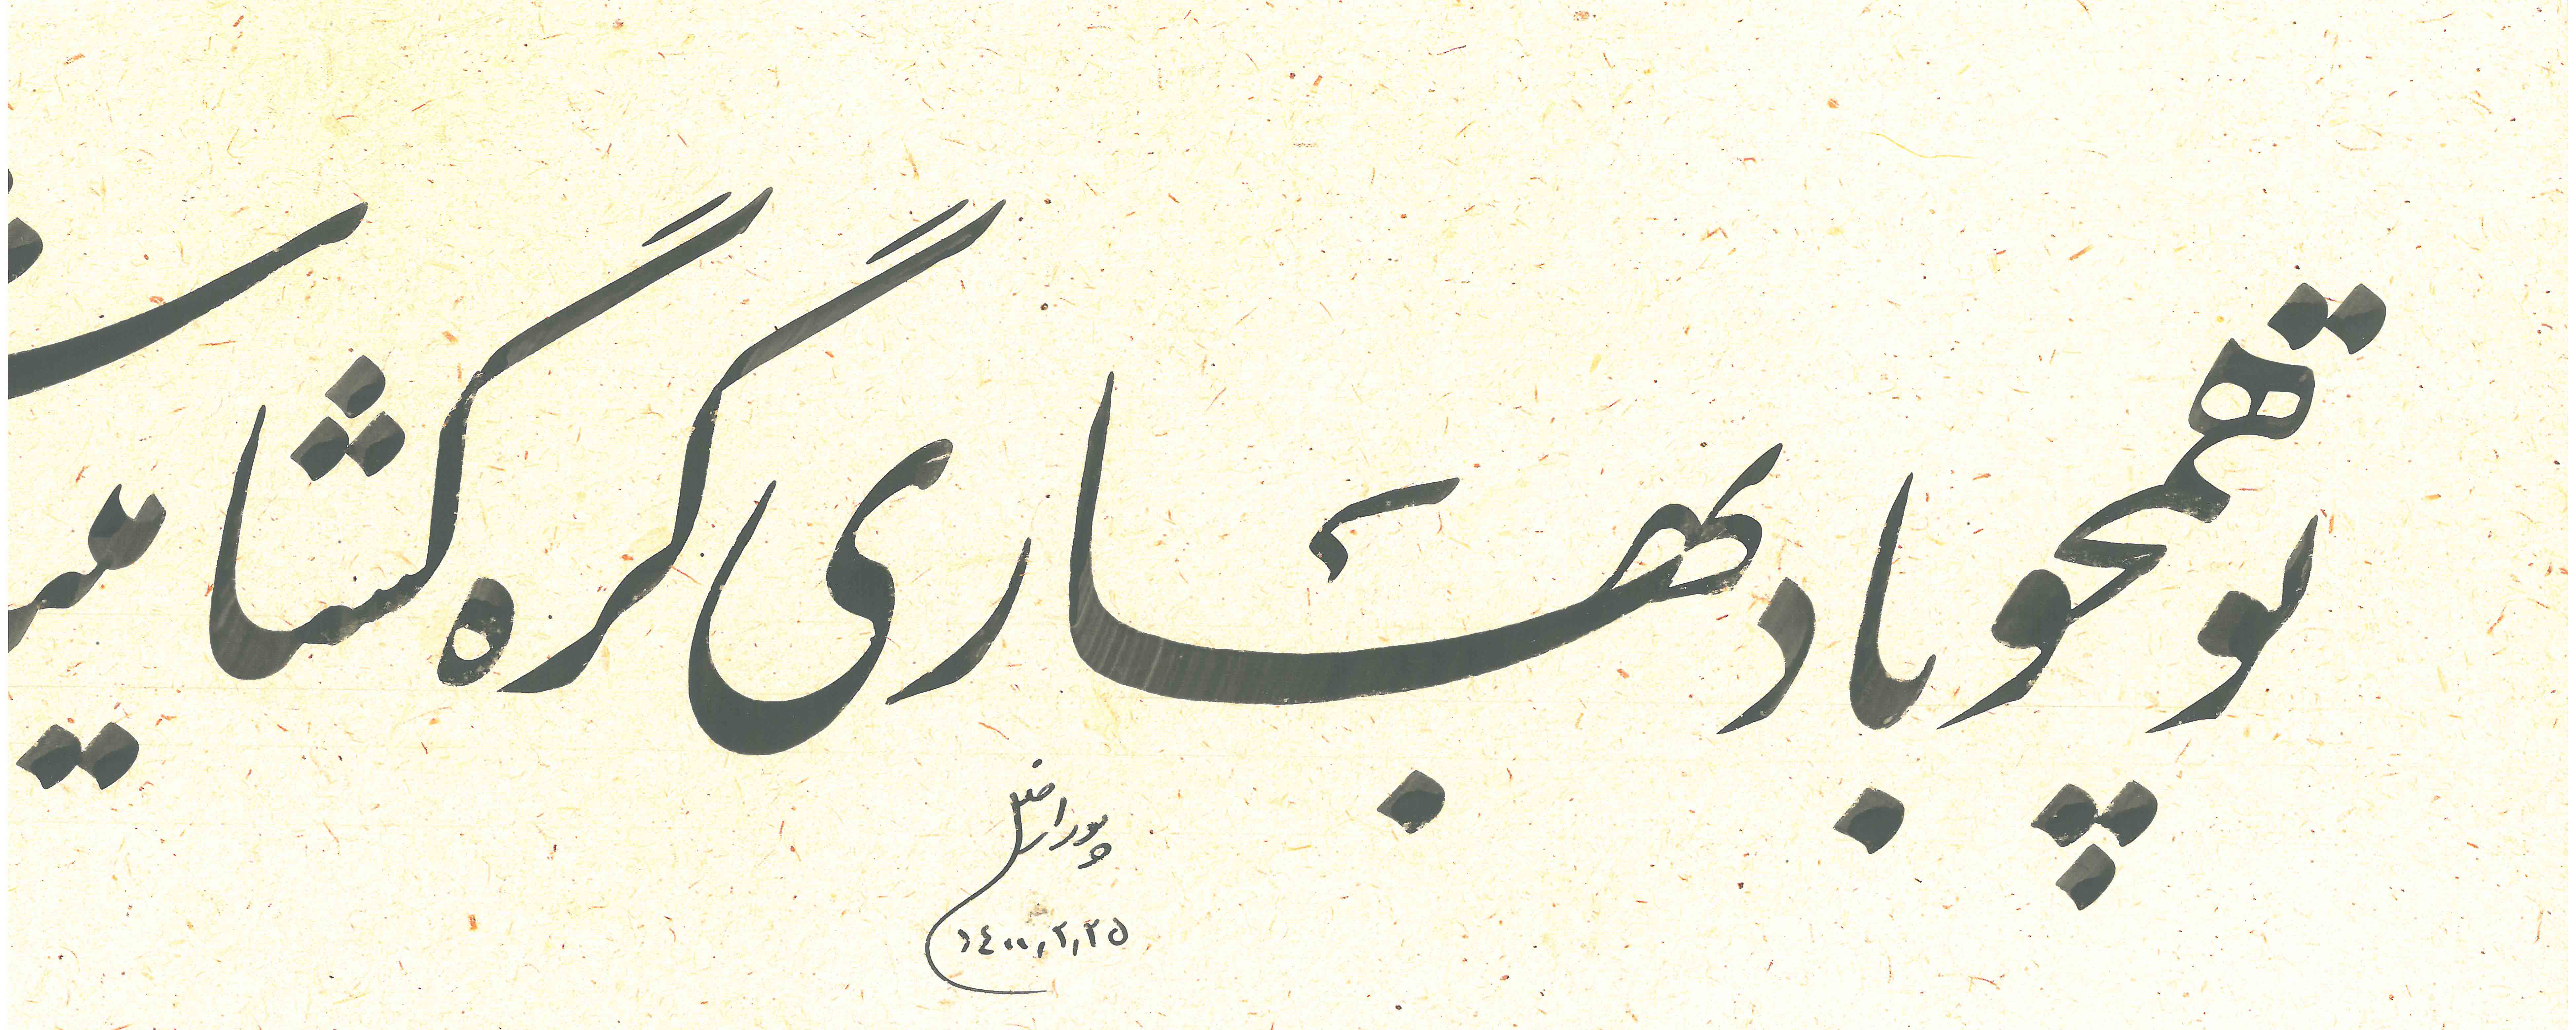 تو همچو باد بهاری گره گشا می
پورافضل
۱۴۰۰,۲,۲۵